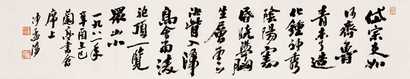 岱宗夫如
何齊魯
青未了造
化鍾神秀
陰陽割
昏曉盪胸
生層雲
決眥入歸
鳥會當凌
絕頂一覽
眾山小
一九八一年
辛酉上巳
蘭亭書會
席上
沙孟海